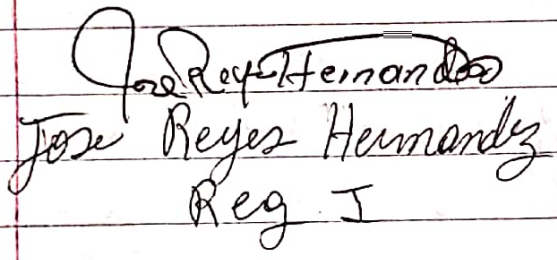 Jose Reyes Hernandez
Jose Reyes Hernandez
Reg I